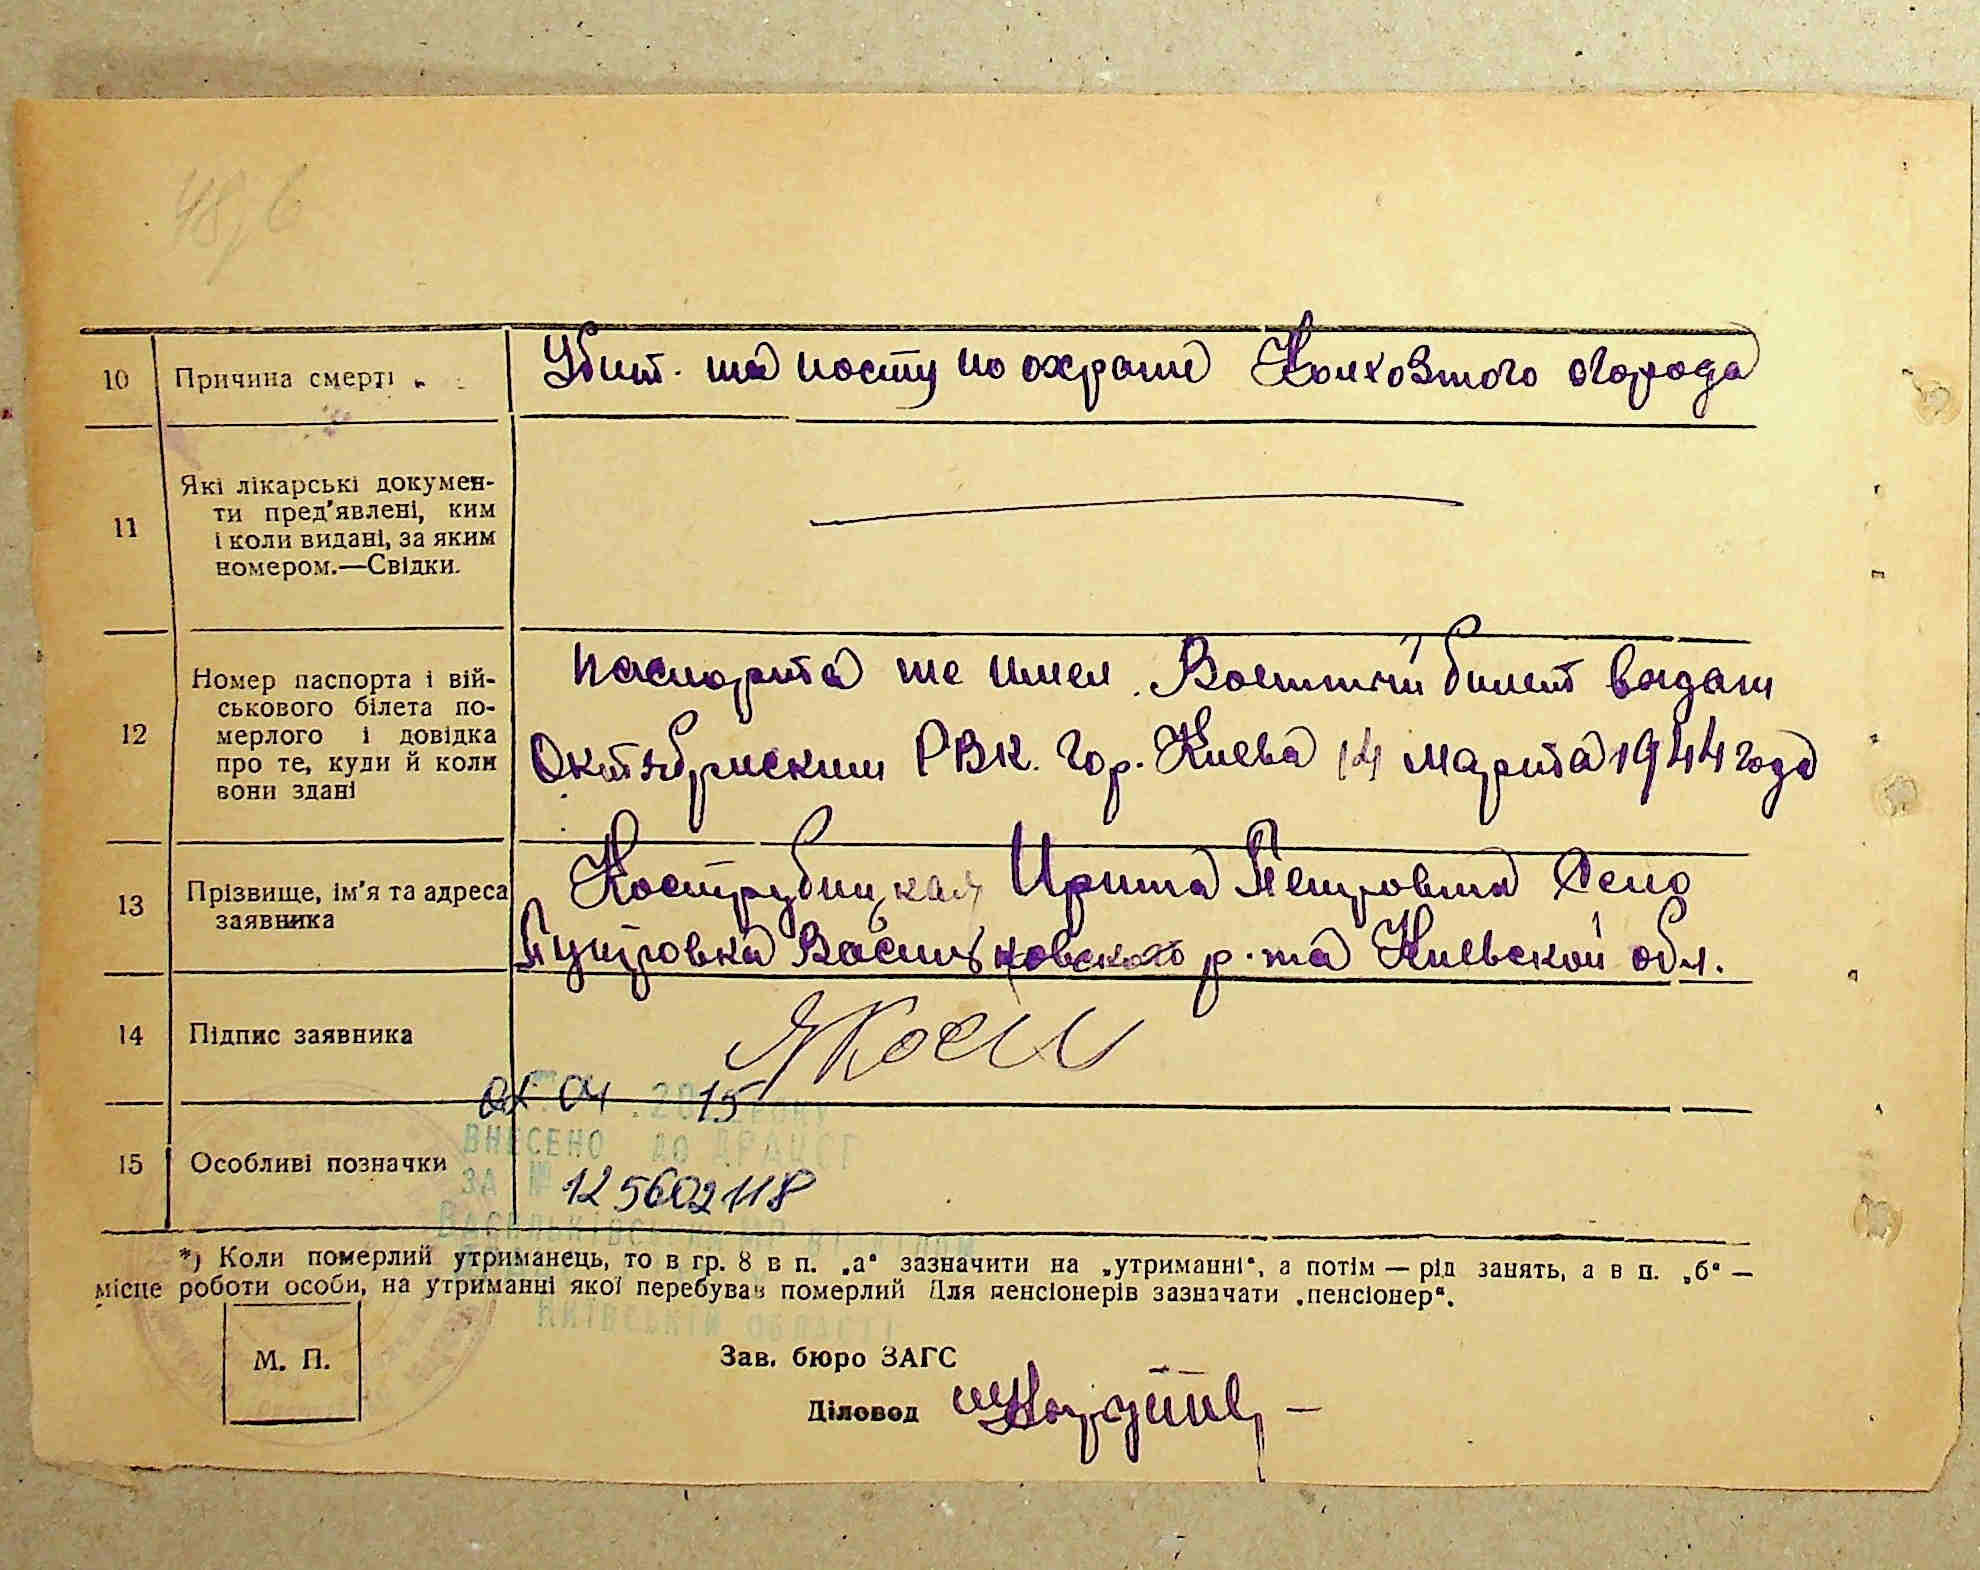 48,6
10 Причина смерті Убит на посту по охране Колхозного огорода
11 Які лікарські докумен-
ти пред'явлені, ким
і коли видані, за яким
номером.—Свідки.
12 Номер паспорта і вій-
ськового білета по-
мерлого і довідка
про те, куди й коли
вони здані
Паспорта не имел. Военный билет выдан
Октябрьским РВК. гор. Киева 14 марта 1944 года
13 Прізвище, ім'я та адреса
заявника
Кострубицкая Ирина Петровна Село
Путровка Васильковского р-на Киевской обл.
14 Підпис заявника
04 2015 РОКУ
ВНЕСЕНО ДО ДРАЦСГ
15 Особливі позначки
ЗА № 125602118
*) Коли померлий утриманець, то в гр. 8 в п. „а“ зазначити на „утриманні“, а потім — рід занять, а в п. „б“ —
місце роботи особи, на утриманні якої перебував померлий Для пенсіонерів зазначати „пенсіонер“.
КИЇВСЬКІЙ ОБЛАСТІ
М. П.
Зав. бюро ЗАГС
Діловод